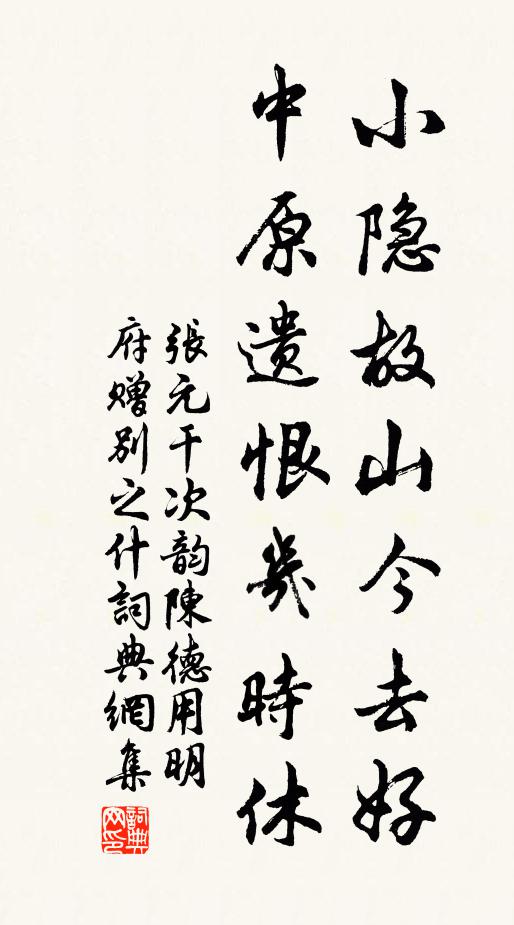 小隐故山今去好
中原遗恨幾時休
張元干次韵陳德用明
府赠别之什詞典網集
詞典网印